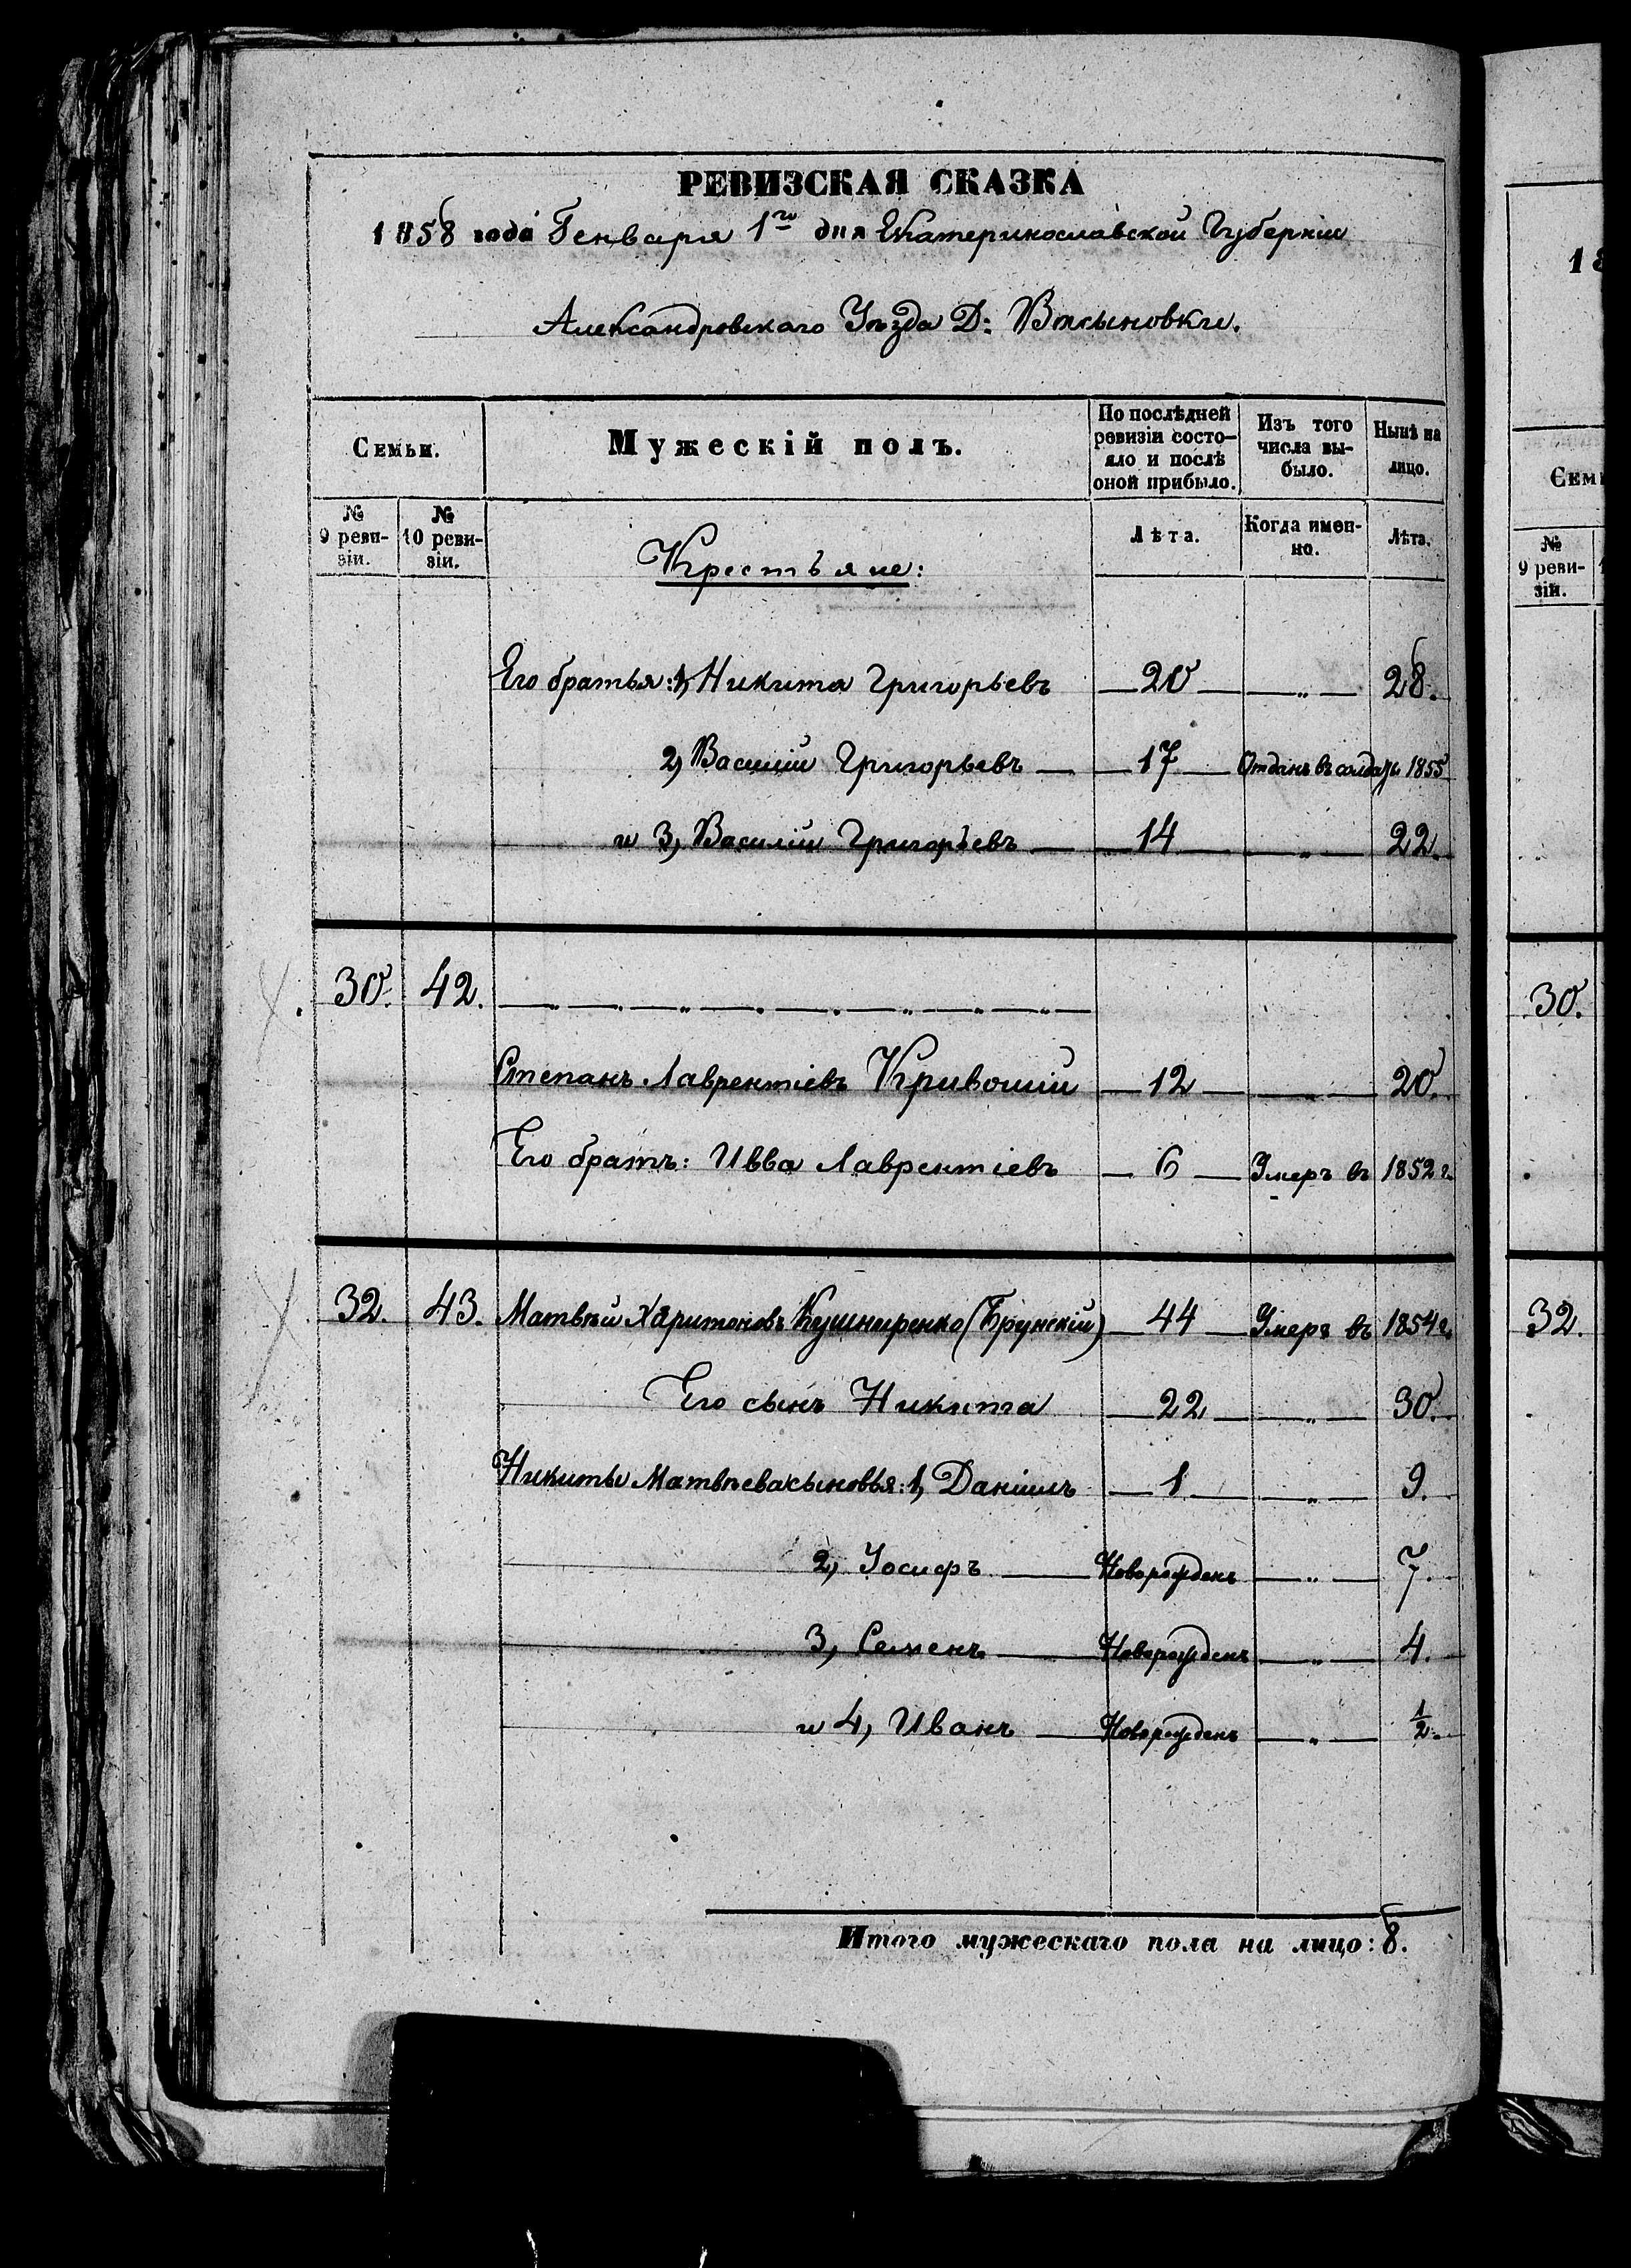 РЕВИЗСКАЯ СКАЗКА
1858 года Генваря 1го дня Екатеринославской Губерніи
Александровскаго Уѣзда Д:
Семьи.
Мужескій полъ.
По послѣдней ревизіи состояло и послѣ оной прибыло.
Изъ того числа выбыло.
Нынѣ на лицо.
№ 9 ревизіи.
№ 10 ревизіи.
Крестьяне:
Лѣта.
Когда именно.
Лѣта.
Его братья: 1, Никита Григорьевъ — 20 — „ — 28.
2, Василій Григорьевъ — 17 — Отданъ въ солдаты 1855
и 3, Василій Григорьевъ — 14 — „ — 22.
30. 42. — „ — „ — „ — „ — „ — „ — „ — „ —
Степанъ Лаврентіевъ — 12 — „ — 20.
Его братъ: Ивва Лаврентіевъ — 6 — Умеръ въ 1852 г.
32. 43. Матвѣй Харитоновъ Кушниренко (Брунскій) — 44 — Умеръ въ 1854 г.
Его сынъ Никита — 22 — „ — 30.
Никиты Матвѣева сыновья: 1, Даніилъ — 1 — „ — 9.
2, Іосифъ — Новорожденъ — „ — 7.
3, Семенъ — Новорожденъ — „ — 4.
и 4, Иванъ — Новорожденъ — „ — 1/2.
Итого мужескаго пола на лицо: 8.
18
Семь
№ 9 ревизіи.
30.
32.